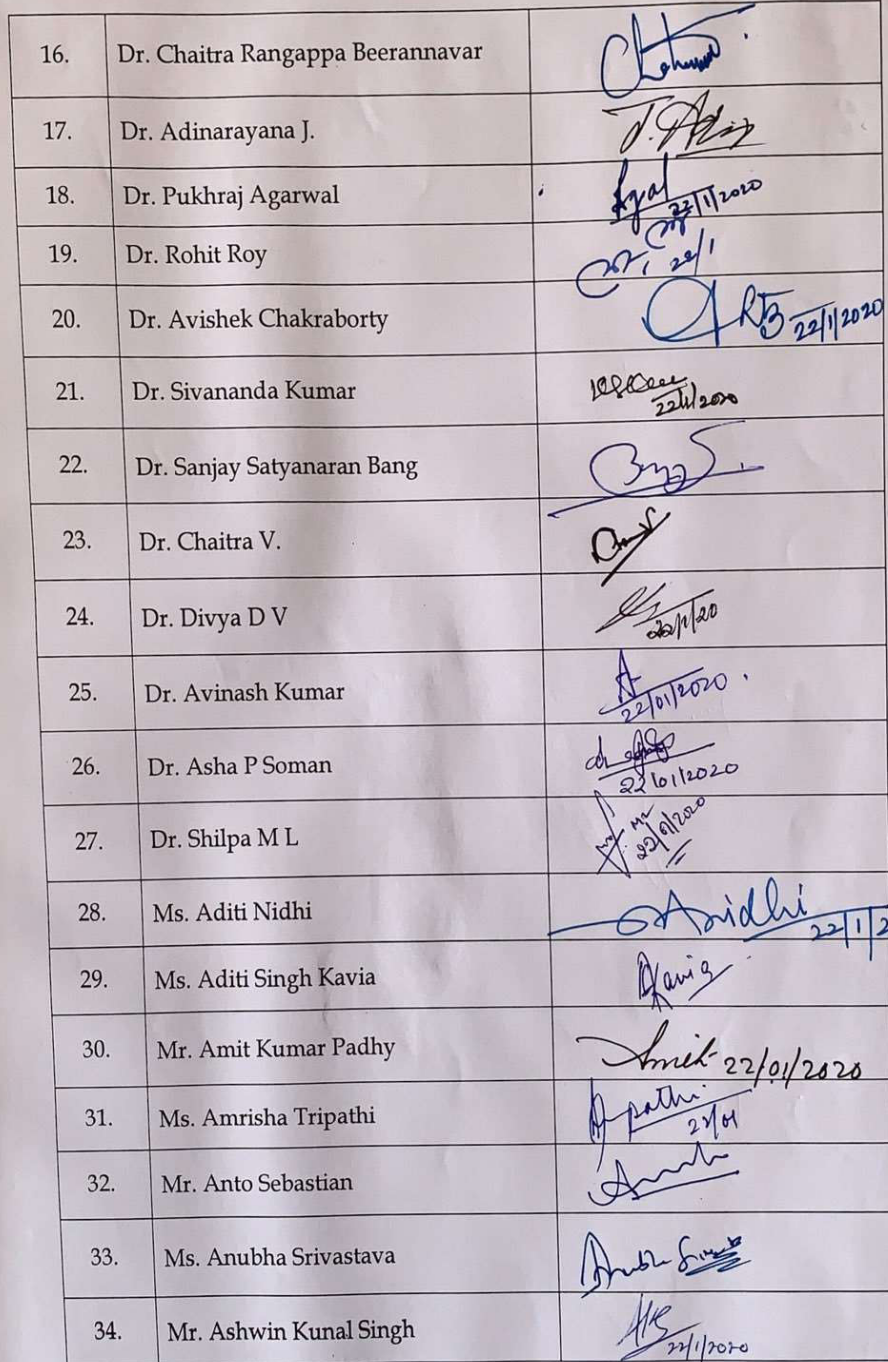 16. Dr. Chaitra Rangappa Beerannavar
17. Dr. Adinarayana J. J. Adin
18. Dr. Pukhraj Agarwal Agal 22/1/2020
19. Dr. Rohit Roy 22/1
20. Dr. Avishek Chakraborty 22/1/2020
21. Dr. Sivananda Kumar 22/1/2020
22. Dr. Sanjay Satyanaran Bang
23. Dr. Chaitra V.
24. Dr. Divya D V 22/1/20
25. Dr. Avinash Kumar A 22/01/2020
26. Dr. Asha P Soman 22/01/2020
27. Dr. Shilpa M L 22/01/2020
28. Ms. Aditi Nidhi Anidhi 22/1/2
29. Ms. Aditi Singh Kavia
30. Mr. Amit Kumar Padhy Amit 22/01/2020
31. Ms. Amrisha Tripathi 22/01
32. Mr. Anto Sebastian
33. Ms. Anubha Srivastava
34. Mr. Ashwin Kunal Singh 22/1/2020